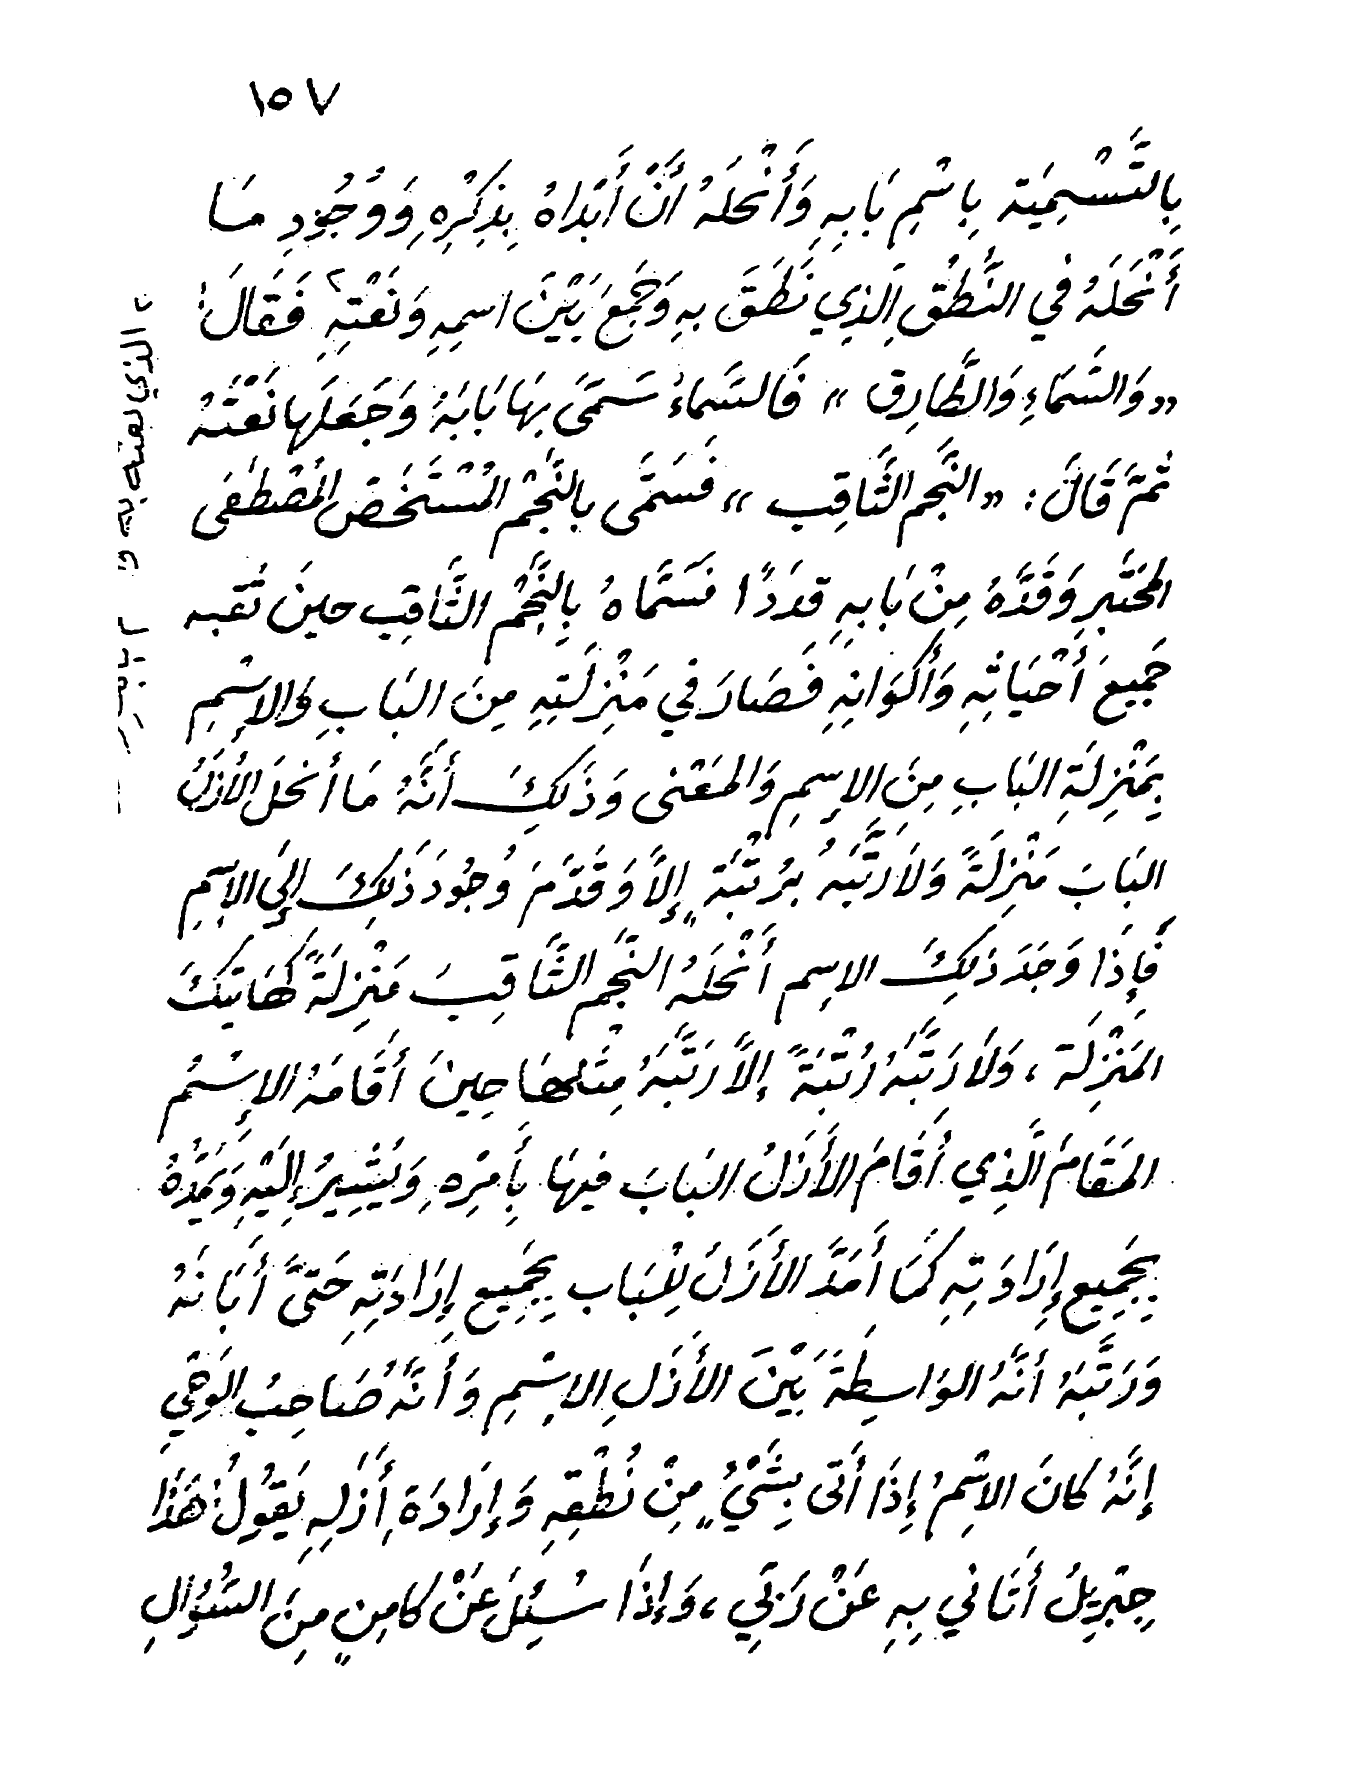 ١٥٧
بِالتَّسْمِيَة بِاسْمِ بَابِهِ وَأَنْحَلَهُ أَنْ أَبْدَاهُ بِذِكْرِهِ وَوُجُودِ مَا
أَنْحَلَهُ في النُّطْقِ الَذِي نَطَقَ بهِ وَجَمَعَ بَيْنَ اسمِهِ وَنَعْتِهِ فَقَالَ:
«وَالسَّمَاءِ وَالطَّارِق» فَالسَّمَاءُ سَمَّى بِهَا بَابَهُ وَجَعَلَها نَعْتَهُ
ثمَّ قَالَ: «النَّجم الثَّاقِب» فَسَمَّى بالنَّجْمِ المُسْتَخَصَّ المُصْطَفى
المخَتَبرِ وَقَدَّهُ مِنْ بَابِهِ قدَدًا فسَمَّاهُ بِالنَّجْمِ الثَّاقِب حينَ ثقبه
جَمِيعَ أَحْيَاثِهِ وَأَكوَانِهِ فَصَارَ في مَنْزِلَتِهِ مِنَ البَابِ وَالإِسْمِ
بِمَنْزِلَةِ البَابِ مِنَ الإِسِمِ وَالمَعْنى وَذَلِكَ أَنَّهُ مَا أَنحَلَ الأَزَلُ
البَابَ مَنْزِلَةً وَلَا رَتَّبَهُ بِرُتْبَةٍ إِلاَّ وَقَدَّمَ وُجُودَ ذَلِكَ إِلَى الإِسِمِ
فَإِذَا وَجَدَ ذَلِكَ الاِسِم أَنْحَلَهُ النَّجْم الثَّاقِبَ مَنْزِلَةً كَهَاتِيكَ
المَنْزِلَة، وَلاَ رَتَّبَهُ رُتْبَةً إِلاَّ رَتَّبَهُ مِثْلَهَا حِينَ أَقَامَهُ الإِسْمُ
المَقَامَ الَّذِي أَقَامَ الأَزَلُ البَابَ فيهَا بِأَمْرِهِ وَيُشِيرُ إِلَيْهِ وَيَمُدُّهُ
بِجَمِيعِ إِرَادَتِهِ كَمَا أَمَدَّ الأَزَلُ لِلْبَاب بِجَمِيعِ إِرَادَتِهِ حَتىَّ أَبَانَهُ
وَرَتَّبَهُ أَنَّهُ الوَاسِطَةَ بَيْنَ الأَزَلِ الاِسْمِ وَأَنَّهُ صَاحِبُ الوَحْيِ
إِنَّهُ كانَ الاِسْمُ إِذَا أَتى بِشَيْءٍ مِنْ نُطْقِهِ وَإِرَادَةِ أَزَلِهِ يَقُولُ: هَذَا
جِبْرِيلُ أَتَاني بِهِ عَنْ رَبِّي، وَإِذَا سُئِلَ عَنْ كامِنٍ مِنَ السُّؤالِ